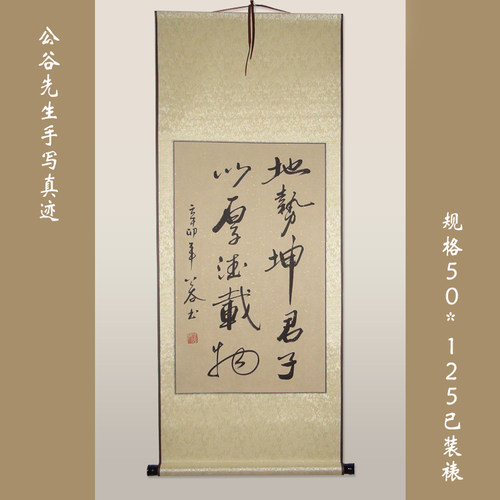 公谷先生手写真迹
地勢坤君子
以厚德載物
辛卯 公谷书
规格50* 125已装裱